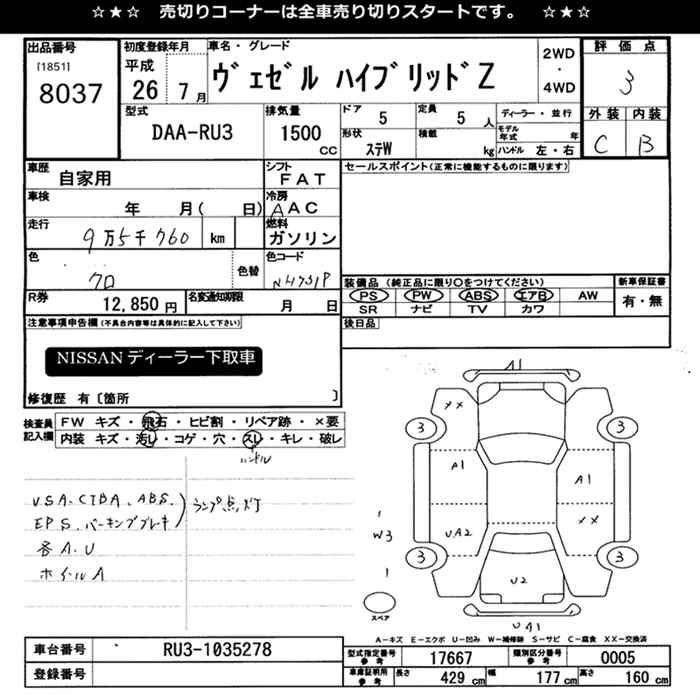 ☆★☆ 売切りコーナーは全車売り切りスタートです。 ☆★☆
出品番号
[1851]
8037
初度登録年月
平成
26 7月
車名・グレード
ヴェゼル ハイブリッドZ
2WD
・
4WD
評価点
3
外装 内装
C B
型式
DAA-RU3
排気量
1500
CC
ドア
5
定員
5人
形状
ステW
積載
kg
ディーラー・並行
モデル年式 年
ハンドル 左・右
車歴
自家用
シフト
FAT
車検
年 月( 日)
冷房
AAC
走行
9万5千760 km
燃料
ガソリン
色
クロ
色替
色コード
NH731P
R券
12,850円
名変通知期限
月 日
セールスポイント(正常に機能するものに限ります)
装備品(純正品に限り○をつけてください)
PS PW ABS エアB AW
SR ナビ TV カワ
新車保証書
有・無
後日品
注意事項申告欄(不具合内容等は具体的に記入して下さい)
NISSANディーラー下取車
修復歴 有〔箇所 〕
検査員記入欄
FW キズ・飛石・ヒビ割・リペア跡・×要
内装 キズ・汚レ・コゲ・穴・スレ・キレ・破レ
ハンドル
VSA、CTBA、ABS、
EPS、パーキングブレキ
ランプ点灯
各A.U
ホイルA
A1
××
3
3
A1
A1
××
UA2
W3
3
3
U2
スペア
UA1
A-キズ E-エクボ U-凹み W-補修跡 S-サビ C-腐食 XX-交換済
車台番号
RU3-1035278
登録番号
型式指定番号
参考
17667
類別区分番号
参考
0005
車庫証明用
参考
長さ
429 cm
幅
177 cm
高さ
160 cm